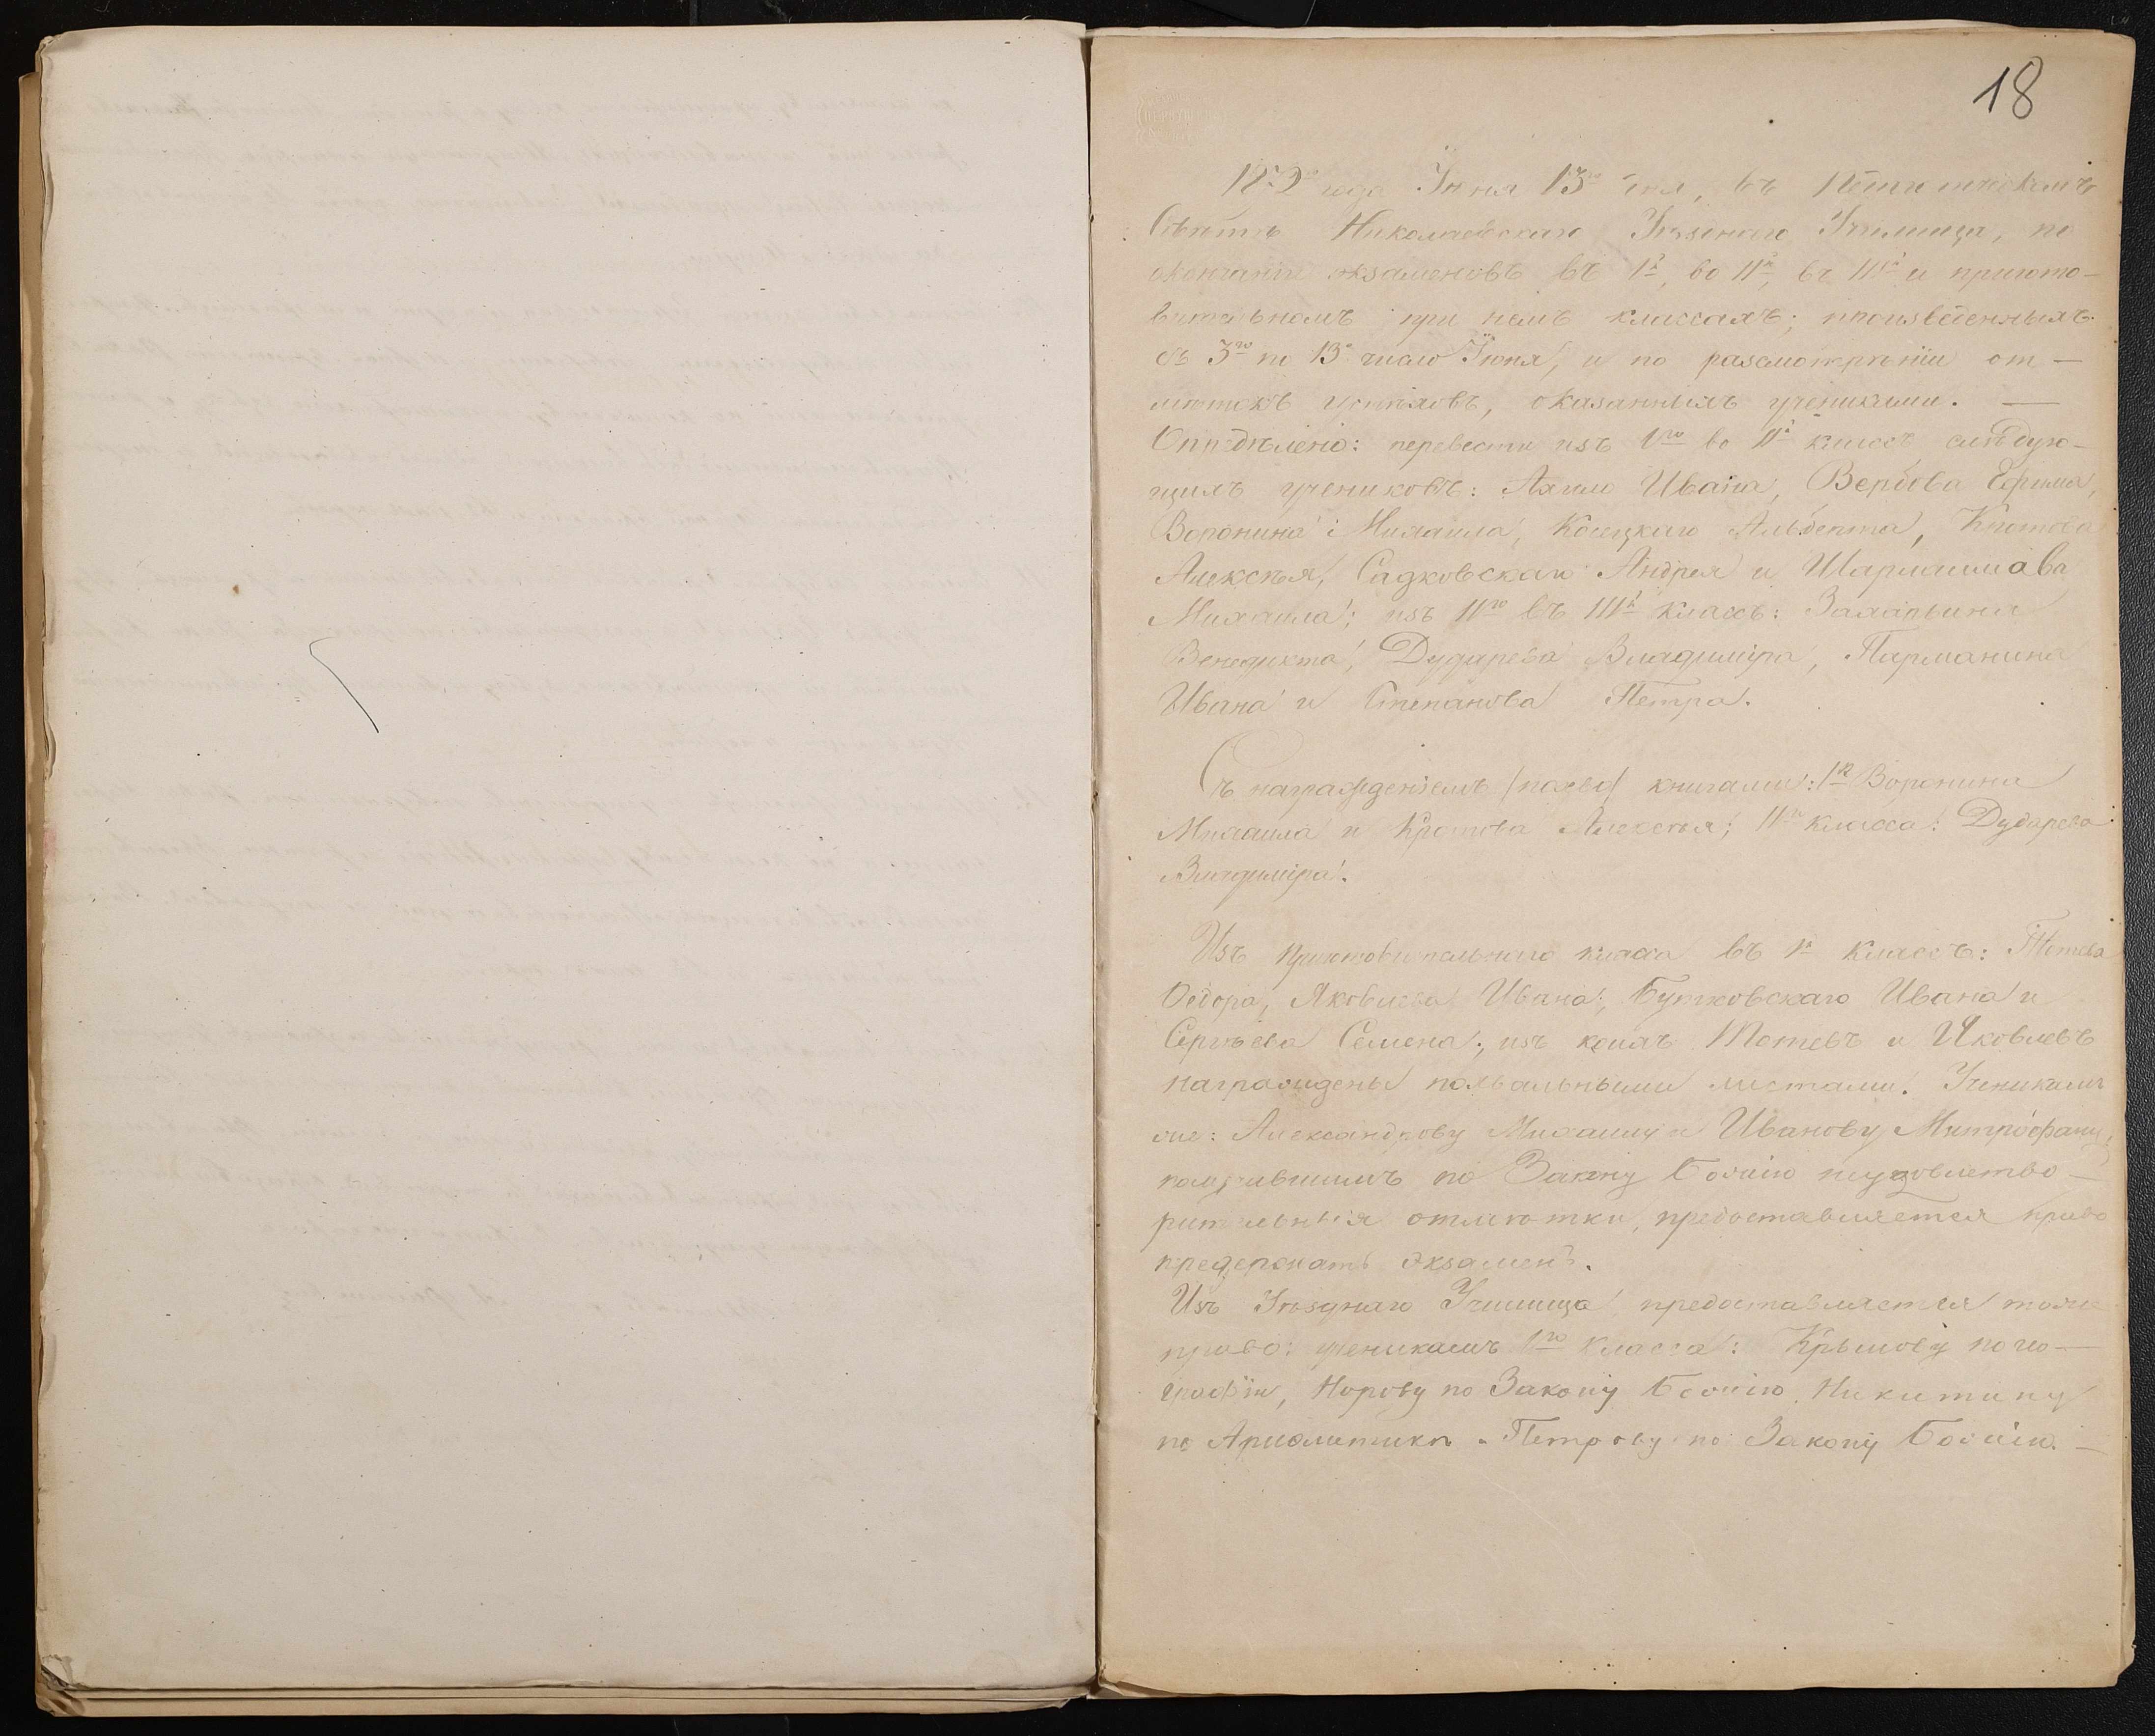 18
года Іюня 13го дня, въ Педагогическомъ
Совѣтѣ Николаевскаго Уѣзднаго Училища, по
окончаніи экзаменовъ въ Iй, во IIй, въ IIIй и пригото-
вительномъ при немъ классахъ, произведенныхъ
съ 3го по 13е число Іюня, и по разсмотрѣніи от-
мѣтокъ успѣховъ, оказанныхъ учениками. —
Опредѣлено: перевести изъ Iго во IIй классъ слѣдую-
щихъ учениковъ: Ивана, Вербова Ефима,
Воронина Михаила, Альберта, Кротова
Алексѣя, Садковскаго Андрея и
Михаила; изъ IIго въ IIIй классъ: Захарьина
Венедикта, Дударева Владиміра, Парманина
Ивана и Степанова Петра.
Съ награжденіемъ /похвал/ книгами: Iго Воронина
Михаила и Кротова Алексѣя; IIго класса: Дударева
Владиміра.
Изъ приготовительнаго класса въ Iй классъ: Тотева
Ѳедора, Яковлева Ивана, Бутковскаго Ивана и
Сергѣева Семена; изъ коихъ Тотевъ и Яковлевъ
награждены похвальными листами. Ученикамъ
же: Александрову Михаилу и Иванову Митрофану,
получившимъ по Закону Божію неудовлетво-
рительныя отмѣтки, предоставляется право
предержать экзаменъ.
Изъ Уѣзднаго Училища предоставляется тоже
право: ученикамъ Iго класса: Крылову по гео-
графіи, Норову по Закону Божію, Никитину
по Ариѳметикѣ и Петрову по Закону Божію. —